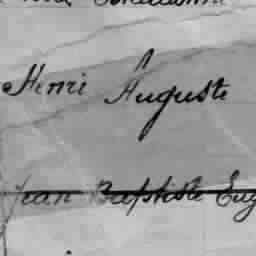 Henri Auguste
Jean Baptiste Eug